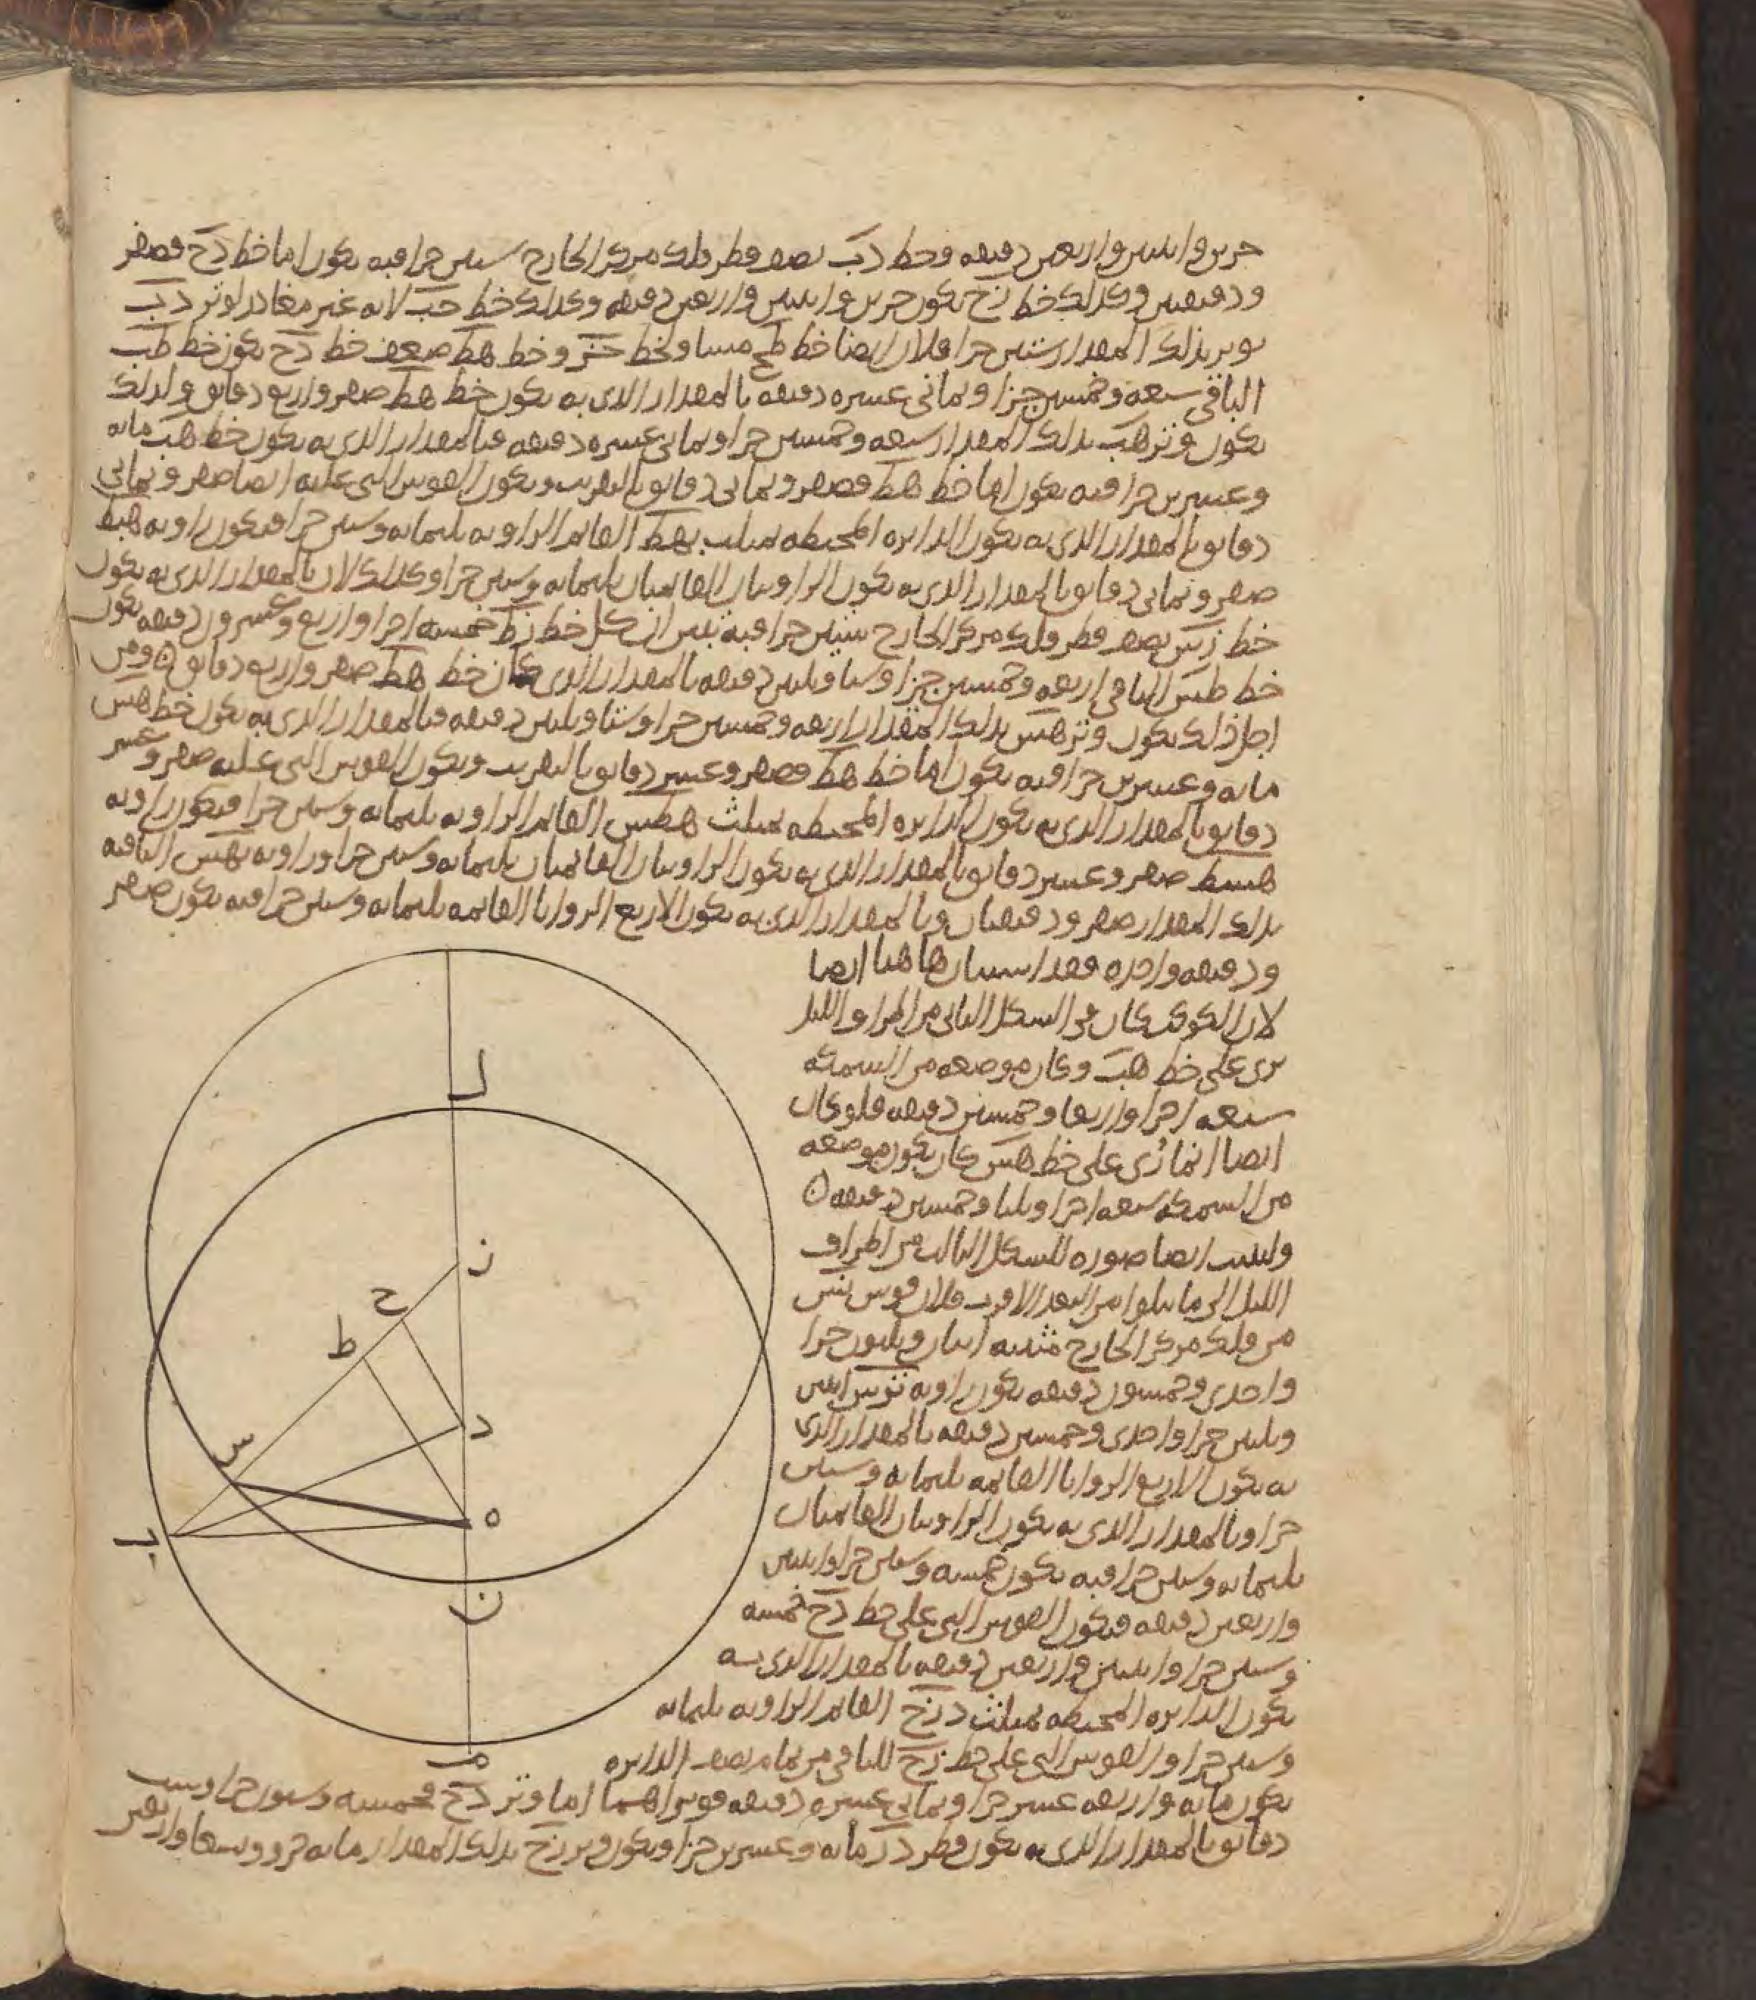 جزين واثنين واربعين دقيقه وخط دب نصف قطر فلك مركز الخارج ستين جزا فبه يكون اما خط دح فصفر
ودقيقتين وكذلك خط زح يكون جزين واثنين واربعين دقيقه وكذلك خط حب لانه غير مغادر لوتر دب
يوتر بذلك المقدار ستين جزا فلان ايضا خط طح مساو لخط حز وخط هط ضعف خط دح يكون خط طب
الباقي سبعه وخمسين جزا وثماني عشره دقيقه بالمقدار الذي به يكون خط هط صفر واربع دقائق ولذلك
يكون وتر هب بذلك المقدار سبعه وخمسين جزا وثماني عشره دقيقه فبالمقدار الذي به يكون خط هب مائه
وعشرين جزا فبه يكون اما خط هط فصفر وثماني دقائق بالتقريب ويكون القوس التي عليه ايضا صفر وثماني
دقائق بالمقدار الذي به يكون الدايره المحيطه بمثلث بهط القائم الزاويه ثلثمائه وستين جزا فيكون زاويه هبط
صفر وثماني دقائق بالمقدار الذي به يكون الزاويتان القائمتان ثلثمائه وستين جزا وكذلك لان بالمقدار الذي به يكون
خط زس نصف قطر فلك مركز الخارج ستين جزا فبه تبين ان كل خط زط خمسه اجزا واربع وعشرون دقيقه يكون
خط طس الباقي اربعه وخمسين جزا وستا وثلثين دقيقه بالمقدار الذي كان خط هط صفر واربع دقائق ومن
اجل ذلك يكون وتر هس بذلك المقدار اربعه وخمسين جزا وستا وثلثين دقيقه فبالمقدار الذي به يكون خط هس
مائه وعشرين جزا فبه يكون اما خط هط فصفر وعشر دقائق بالتقريب ويكون القوس التي عليه صفر وعشر
دقائق بالمقدار الذي به يكون الدايره المحيطه بمثلث هطس القائم الزاويه ثلثمائه وستين جزا فيكون زاويه
هسط صفر وعشر دقائق بالمقدار الذي به يكون الزاويتان القائمتان ثلثمائه وستين جزا وزاويه بهس الباقيه
بذلك المقدار صفر ودقيقتان وبالمقدار الذي به يكون الاربع الزوايا القائمه ثلثمائه وستين جزا فبه يكون صفر
ودقيقه واحده فقد استبان هاهنا ايضا
لان الكوكب كان في الشكل الثاني من اطراف الليل
يرى على خط هب وكان موضعه من السمكه
سبعه اجزا واربعا وخمسين دقيقه فلو كان
ايضا انما رى على خط هس كان يكون موضعه
من السمكه سبعه اجزا وثلثا وخمسين دقيقه
وليثبت ايضا صوره للشكل الثالث من اطراف
الليل الى ما يلوا من البعد الاقرب فلان قوس نس
من فلك مركز الخارج مثبته اثنان وثلثون جزا
واحدى وخمسون دقيقه يكون زاويه نزس اثنين
وثلثين جزا واحدى وخمسين دقيقه بالمقدار الذي
به يكون الاربع الزوايا القائمه ثلثمائه وستين
جزا وبالمقدار الذي به يكون الزاويتان القائمتان
ثلثمائه وستين جزا فبه يكون خمسه وستين جزا واثنين
واربعين دقيقه فيكون القوس التي على خط دح خمسه
وستين جزا واثنين واربعين دقيقه بالمقدار الذي به
يكون الدايره المحيطه بمثلث دزح القائم الزاويه ثلثمائه
وستين جزا والقوس التي على خط زح للباقي من تمام نصف الدايره
يكون مائه واربعه عشر جزا وثماني عشره دقيقه فوتراهما اما وتر دح فخمسه وستون جزا وست
دقائق بالمقدار الذي به يكون قطر دز مائه وعشرين جزا ويكون وتر زح بذلك المقدار مائه جزو وتسعا واربعين
ل
ز
ح
ط
د
س
ه
ب
ن
م